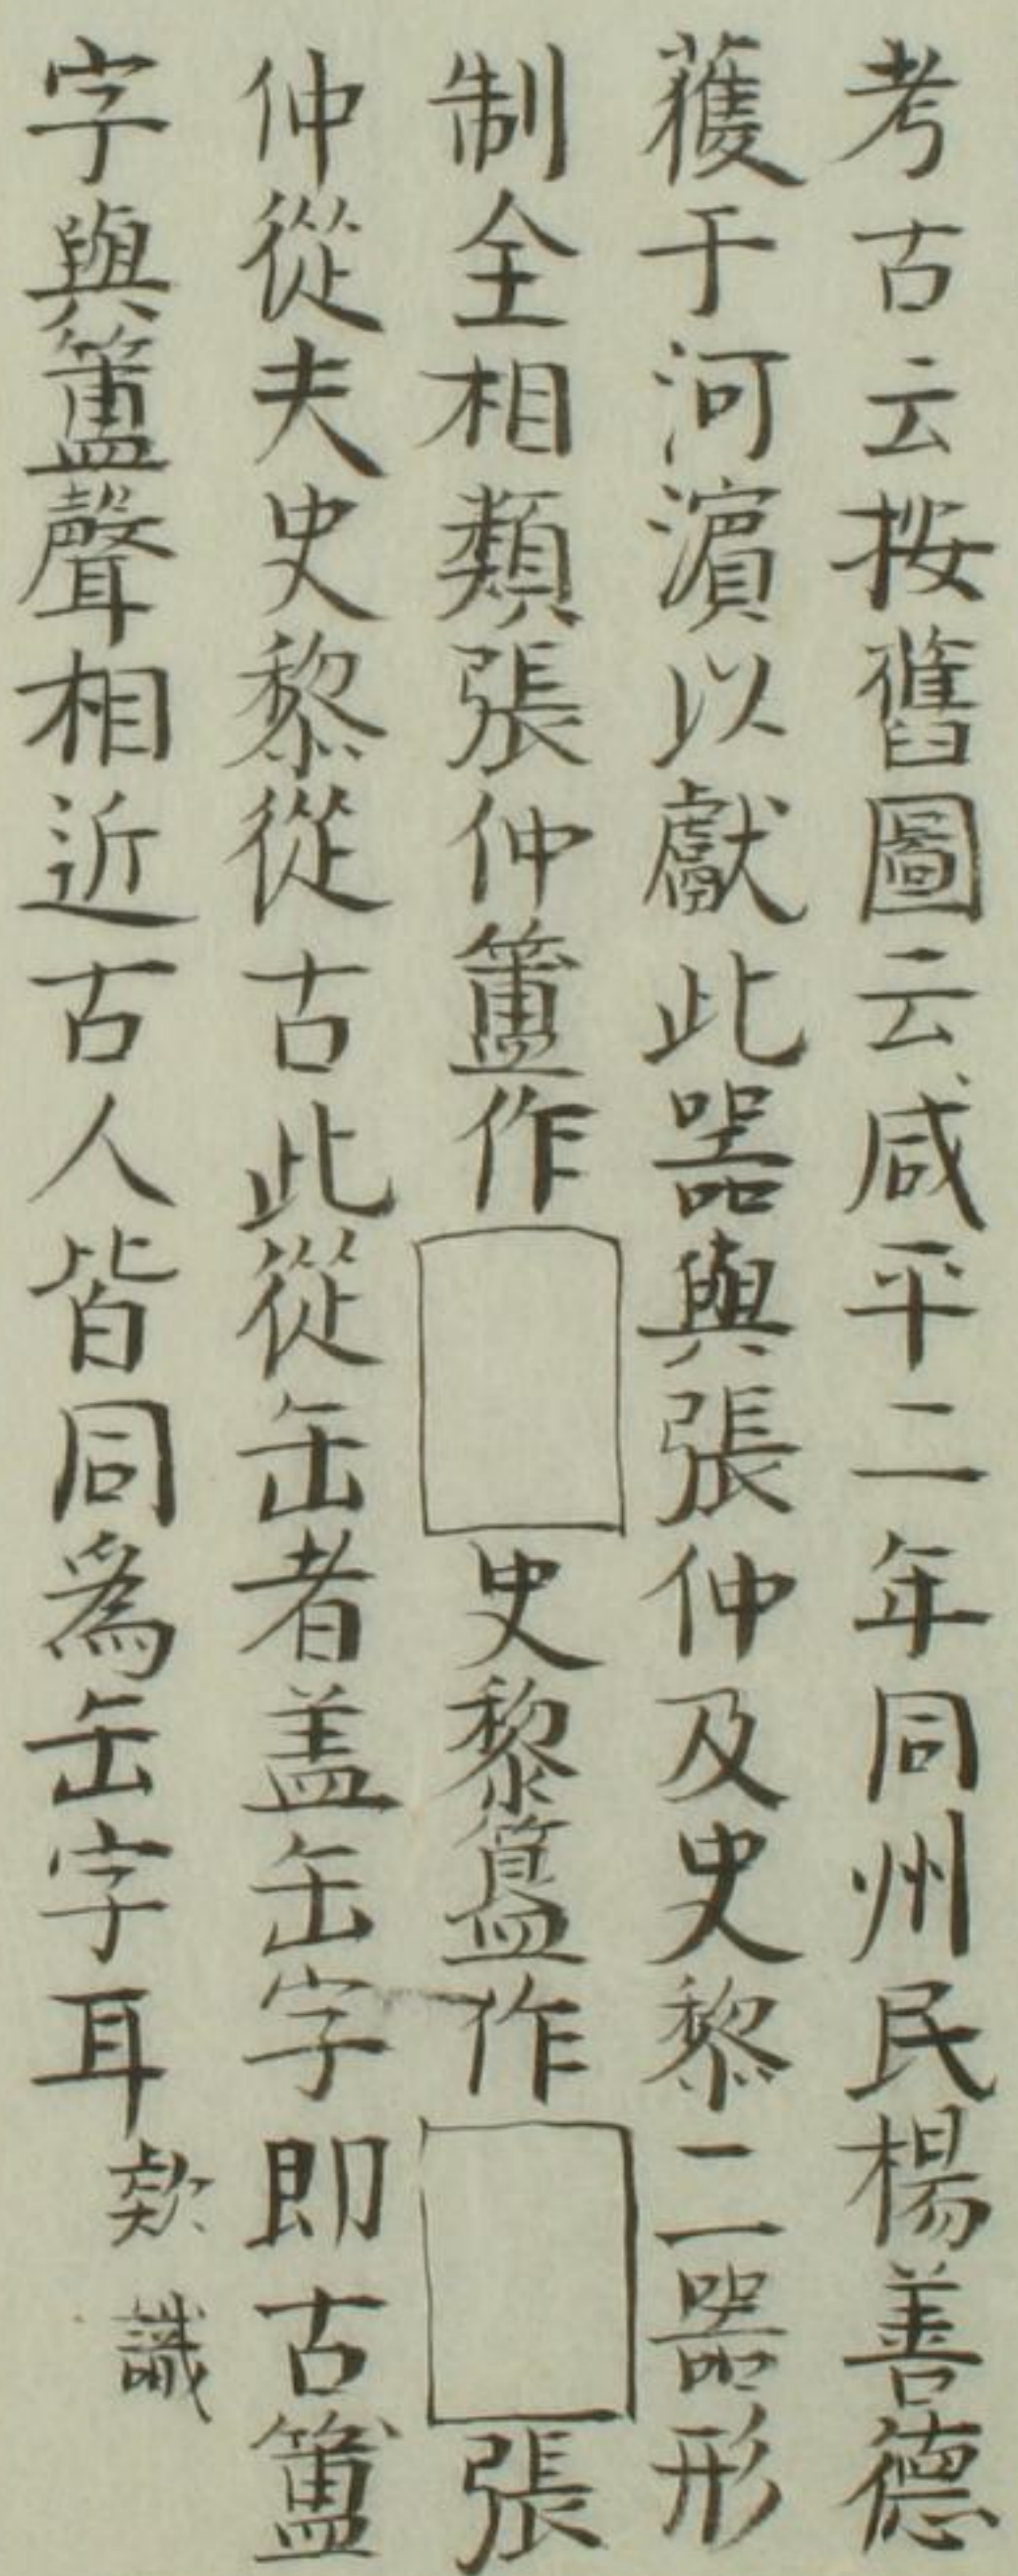 考古云按舊圖云咸平二年同州民楊善德
蒦于河濵以獻此噐與張仲及史黎二噐形
制全相類張仲簠作史黎簋作張
仲從夫史黎從古此從缶者盖缶字即古簠
字與簠聲相近古人皆同為缶字耳欵識